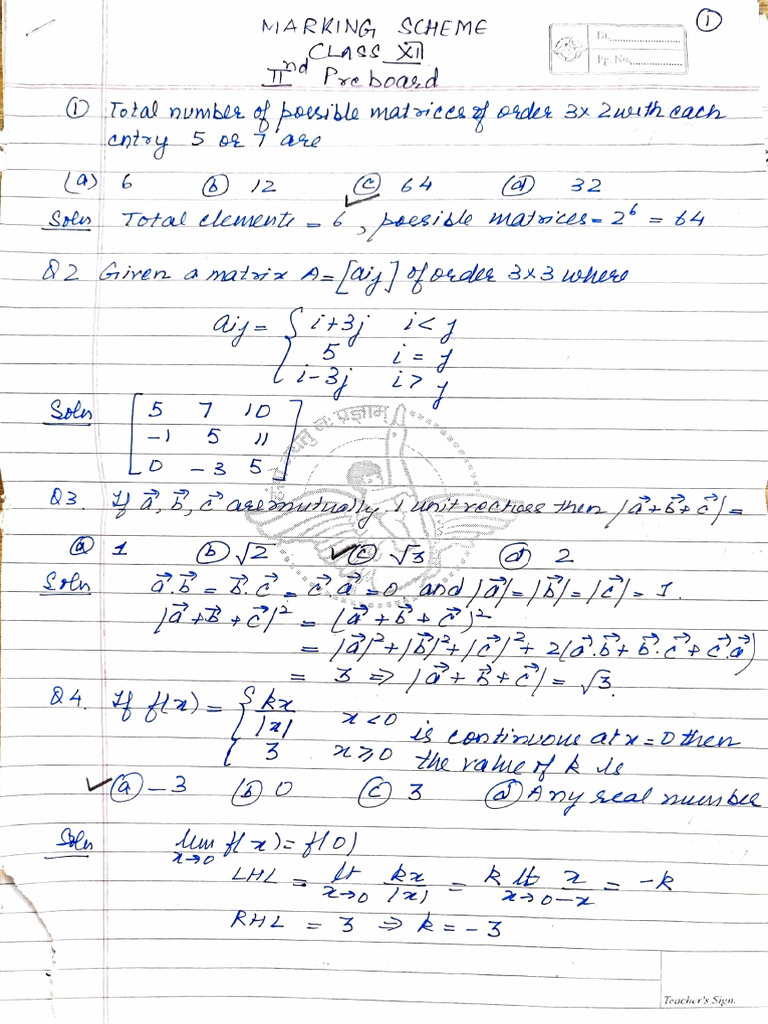 ①
MARKING SCHEME
CLASS XII
IInd Preboard
Dt.
Pp. No.
① Total number of possible matrices of order 3×2 with each
entry 5 or 7 are
(a) 6 ⓑ 12 ⓒ 64 ⓓ 32
Soln Total elements = 6, possible matrices = 2⁶ = 64
Q2 Given a matrix A = [aij] of order 3×3 where
aij = { i+3j i<j
5 i=j
i-3j i>j
Soln [ 5 7 10
-1 5 11
0 -3 5 ]
Q3. If a⃗, b⃗, c⃗ are mutually ⊥ unit vectors then |a⃗+b⃗+c⃗| =
ⓐ 1 ⓑ √2 ✓ⓒ √3 ⓓ 2
Soln a⃗.b⃗ = b⃗.c⃗ = c⃗.a⃗ = 0 and |a⃗|=|b⃗|=|c⃗|= 1.
|a⃗+b⃗+c⃗|² = (a⃗+b⃗+c⃗)²
= |a⃗|²+|b⃗|²+|c⃗|²+2(a⃗.b⃗+b⃗.c⃗+c⃗.a⃗)
= 3 ⇒ |a⃗+b⃗+c⃗| = √3.
Q4. If f(x) = { kx/|x| x<0 is continuous at x=0 then
3 x≥0 the value of k is
✓ⓐ -3 ⓑ 0 ⓒ 3 ⓓ Any real number
Soln lim x→0 f(x) = f(0)
LHL = lt x→0 kx/|x| = k lt x→0 x/-x = -k
RHL = 3 ⇒ k = -3
Teacher's Sign.